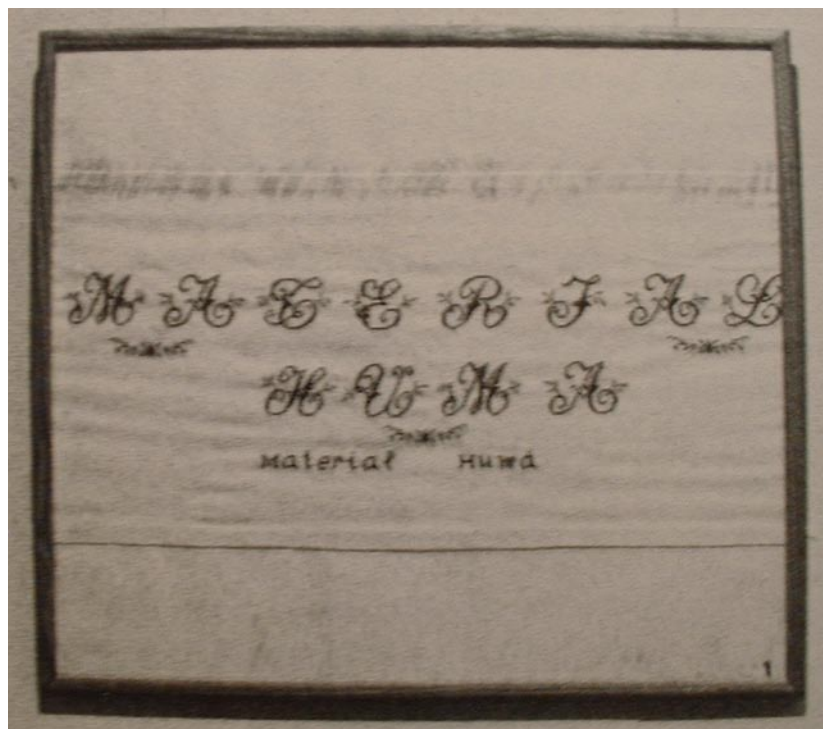 MATERIAL
HUMA
Material Humá
1